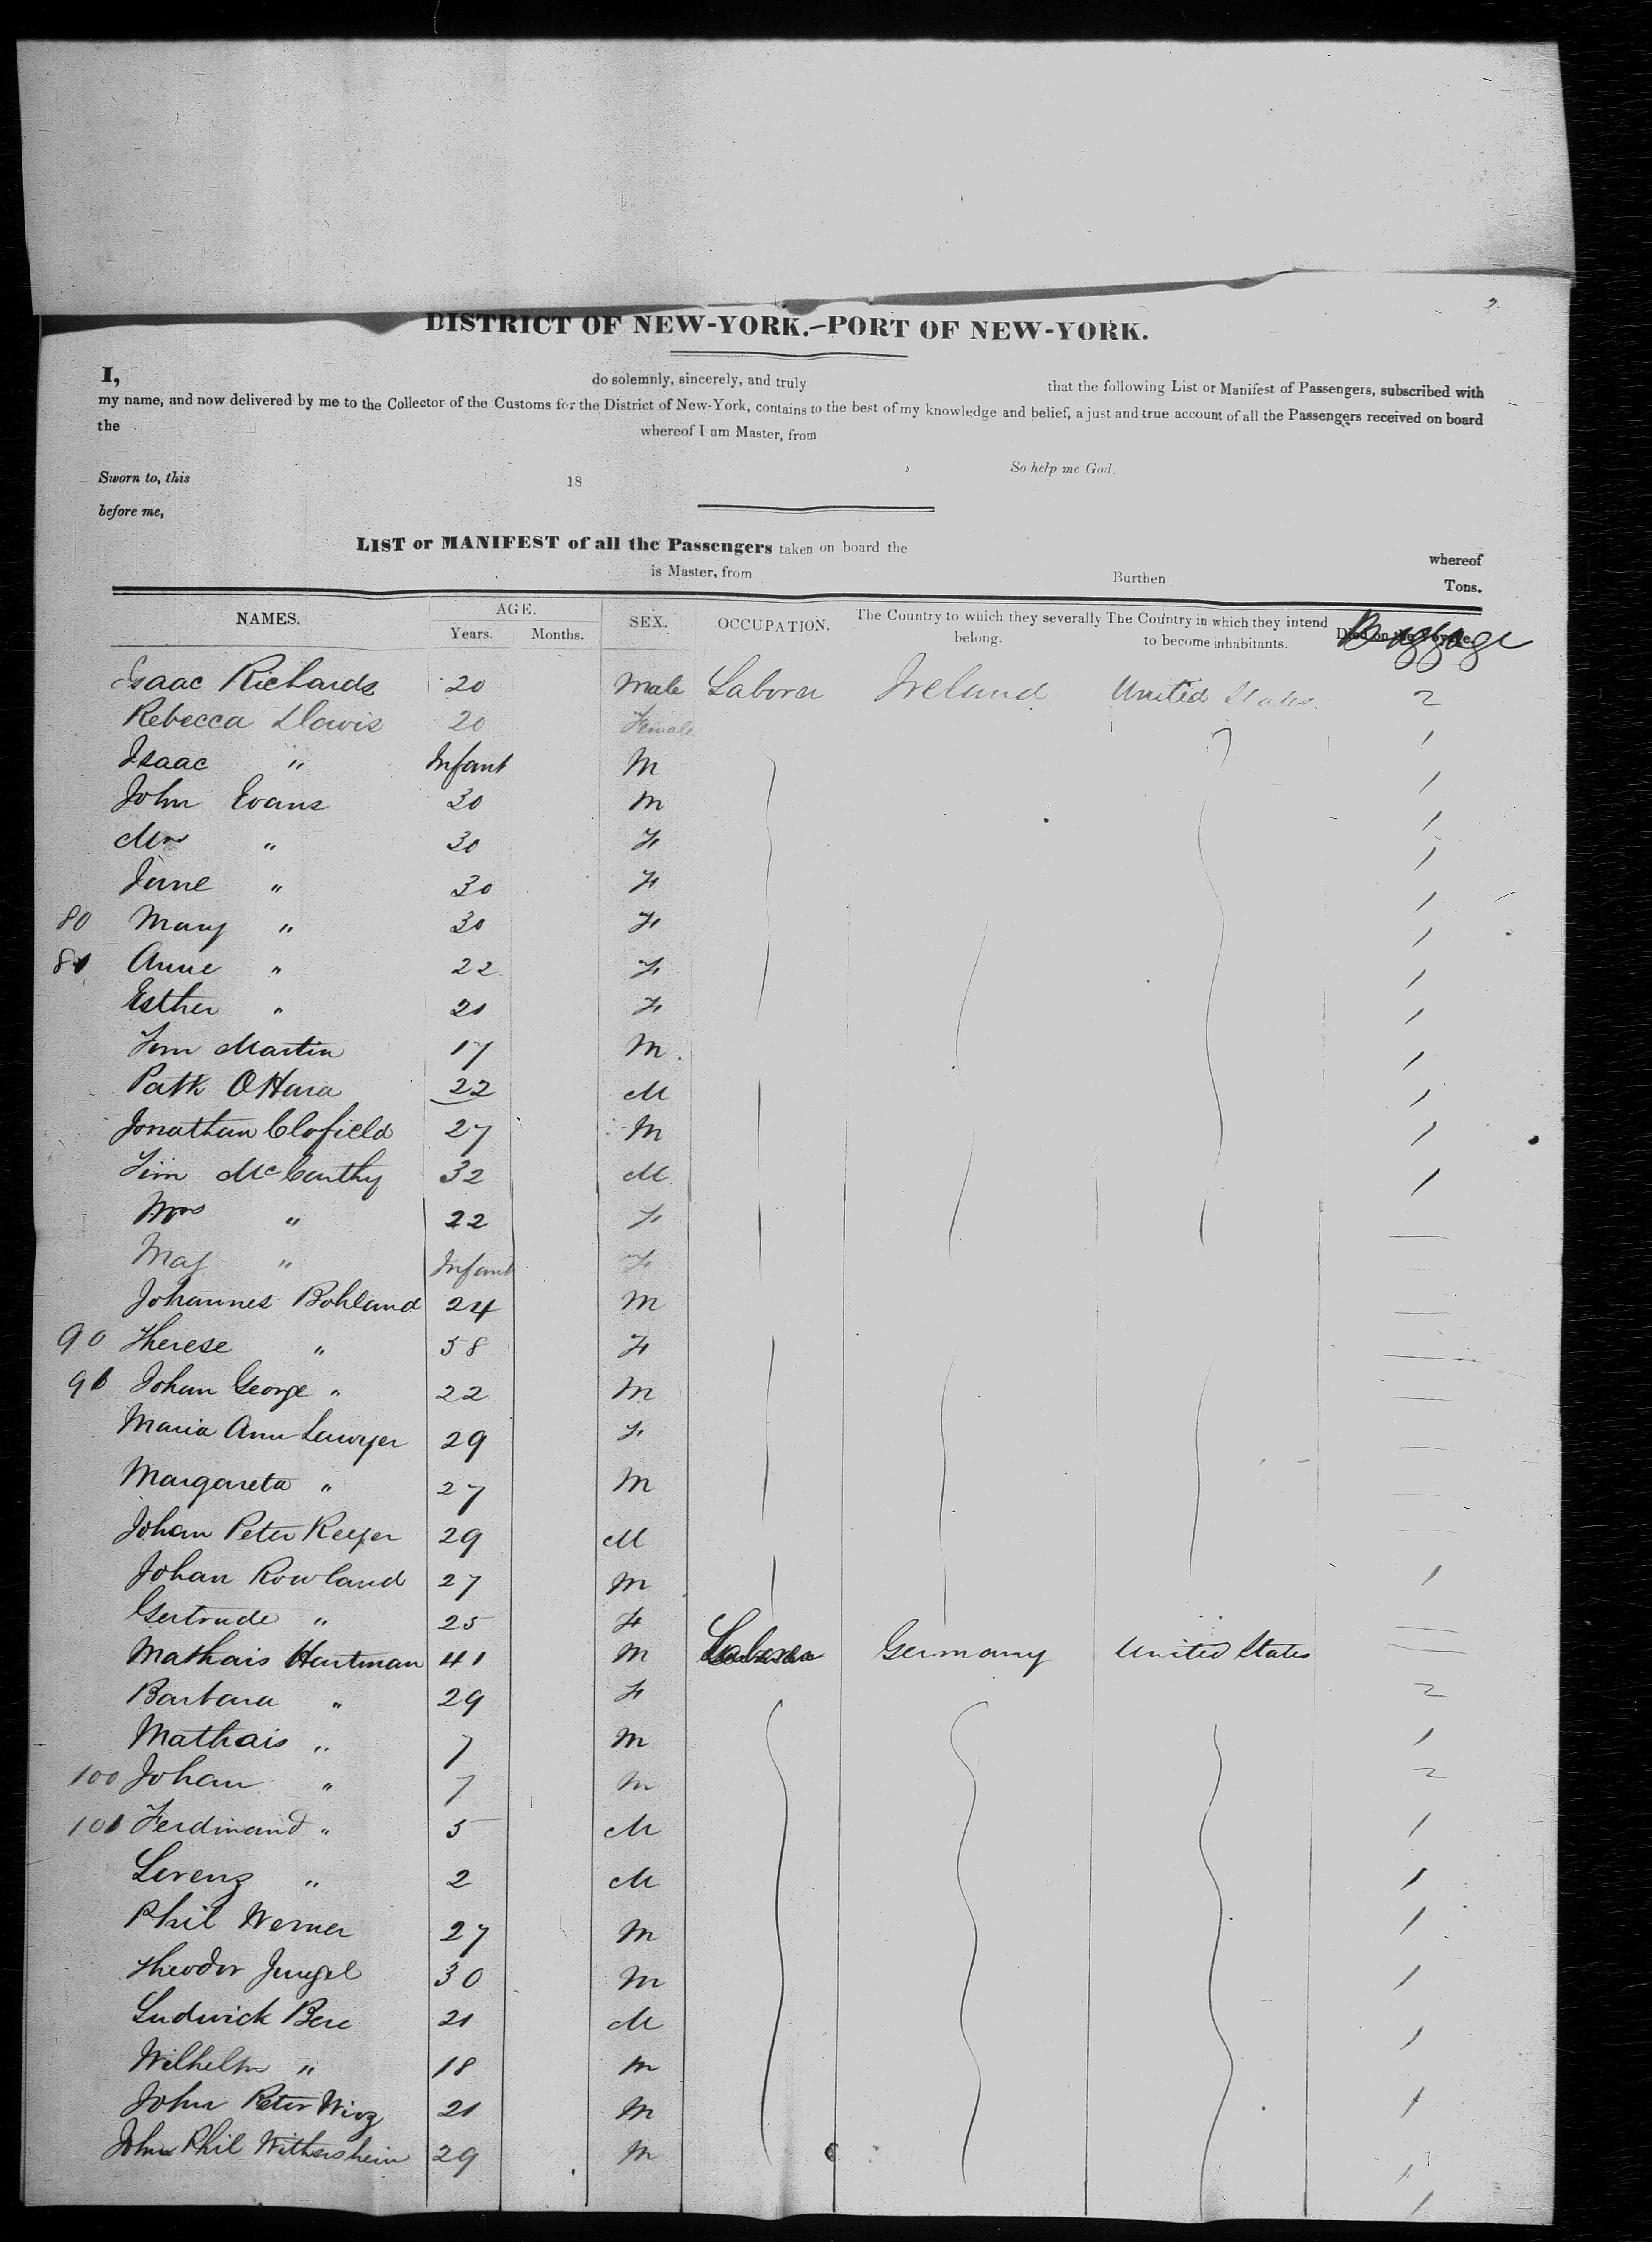 DISTRICT OF NEW-YORK.—PORT OF NEW-YORK.
I, do solemnly, sincerely, and truly that the following List or Manifest of Passengers, subscribed with
my name, and now delivered by me to the Collector of the Customs for the District of New-York, contains to the best of my knowledge and belief, a just and true account of all the Passengers received on board
the whereof I am Master, from
So help me God.
Sworn to, this 18
before me,
LIST or MANIFEST of all the Passengers taken on board the whereof
is Master, from Burthen Tons.
NAMES. AGE. Years. Months. SEX. OCCUPATION. The Country to which they severally belong. The Country in which they intend to become inhabitants. Died on the Voyage. Baggage
Isaac Richards 20 Male Laborer Ireland United States 2
Rebecca Davis 20 Female 1
Isaac " Infant M 1
John Evans 30 M 1
Mrs " 30 F 1
Jane " 30 F 1
80 Mary " 30 F 1
81 Anne " 22 F 1
Esther " 21 F 1
Martin 17 M 1
Patk OHara 22 M 1
Jonathan Clofield 27 M 1
Tim McCarthy 32 M 1
Mrs " 22 F —
" Infant F —
Johannes Bohland 24 M —
90 Therese " 58 F —
91 Johan George " 22 M —
Maria Ann 29 F —
Margareta " 27 M —
Johan Peter 29 M —
Johan Rowland 27 M 1
Gertrude " 25 F —
Mathais Hartman 41 M Laborer Germany United States —
Barbara " 29 F 2
Mathais " 7 M 1
100 Johan " 7 M 2
101 Ferdinand " 5 M 1
Lorenz " 2 M 1
Phil Werner 27 M 1
Theodor 30 M 1
Ludwick Bere 21 M 1
Wilhelm " 18 M
John Peter Wirz 21 M 1
John Phil 29 M 1
1